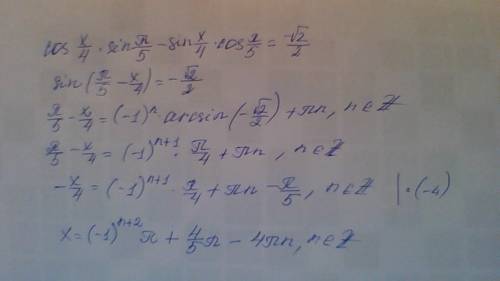 cos x/4 · sin π/5 − sin x/4 · cos π/5 = −√2/2
sin(π/5 − x/4) = −√2/2
π/5 − x/4 = (−1)^n · arcsin(−√2/2) + πn, n∈Z
π/5 − x/4 = (−1)^(n+1) · π/4 + πn, n∈Z
−x/4 = (−1)^(n+1) · π/4 + πn − π/5, n∈Z |·(−4)
x = (−1)^(n+2) π + 4/5 π − 4πn, n∈Z